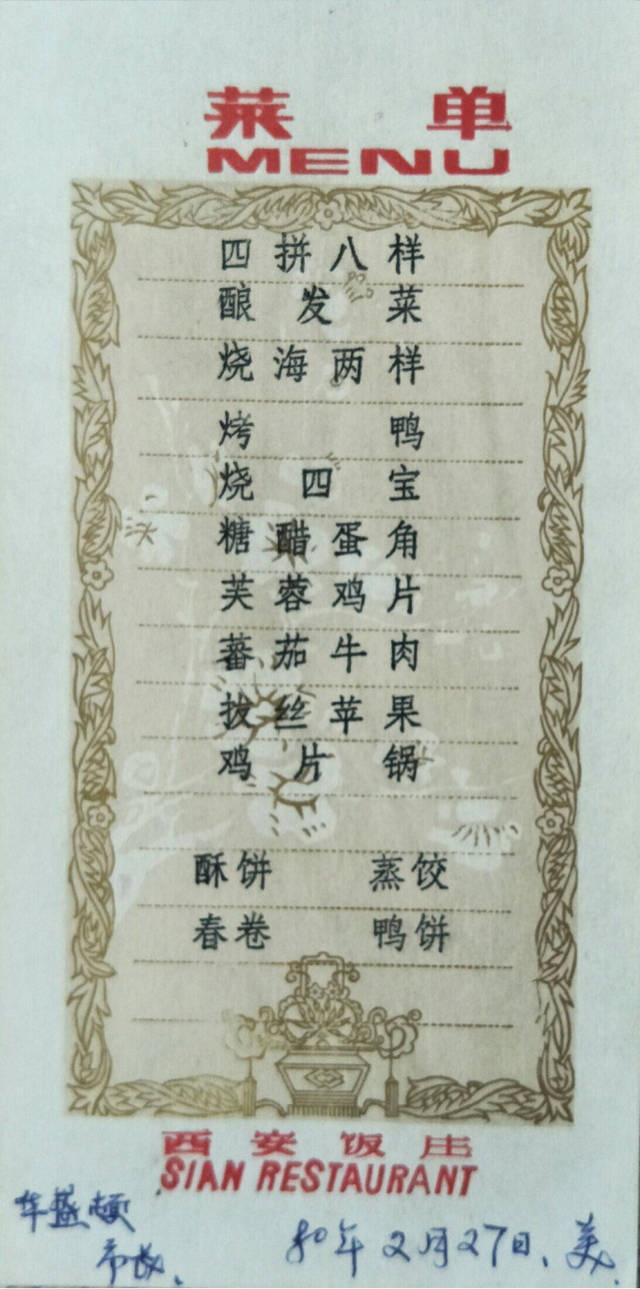 菜单
MENU
四拼八样
酿发菜
烧海两样
烤鸭
烧四宝
糖醋蛋角
芙蓉鸡片
蕃茄牛肉
拔丝苹果
鸡片锅
酥饼 蒸饺
春卷 鸭饼
西安饭庄
SIAN RESTAURANT
华盛顿
市长、
80年2月27日、美、